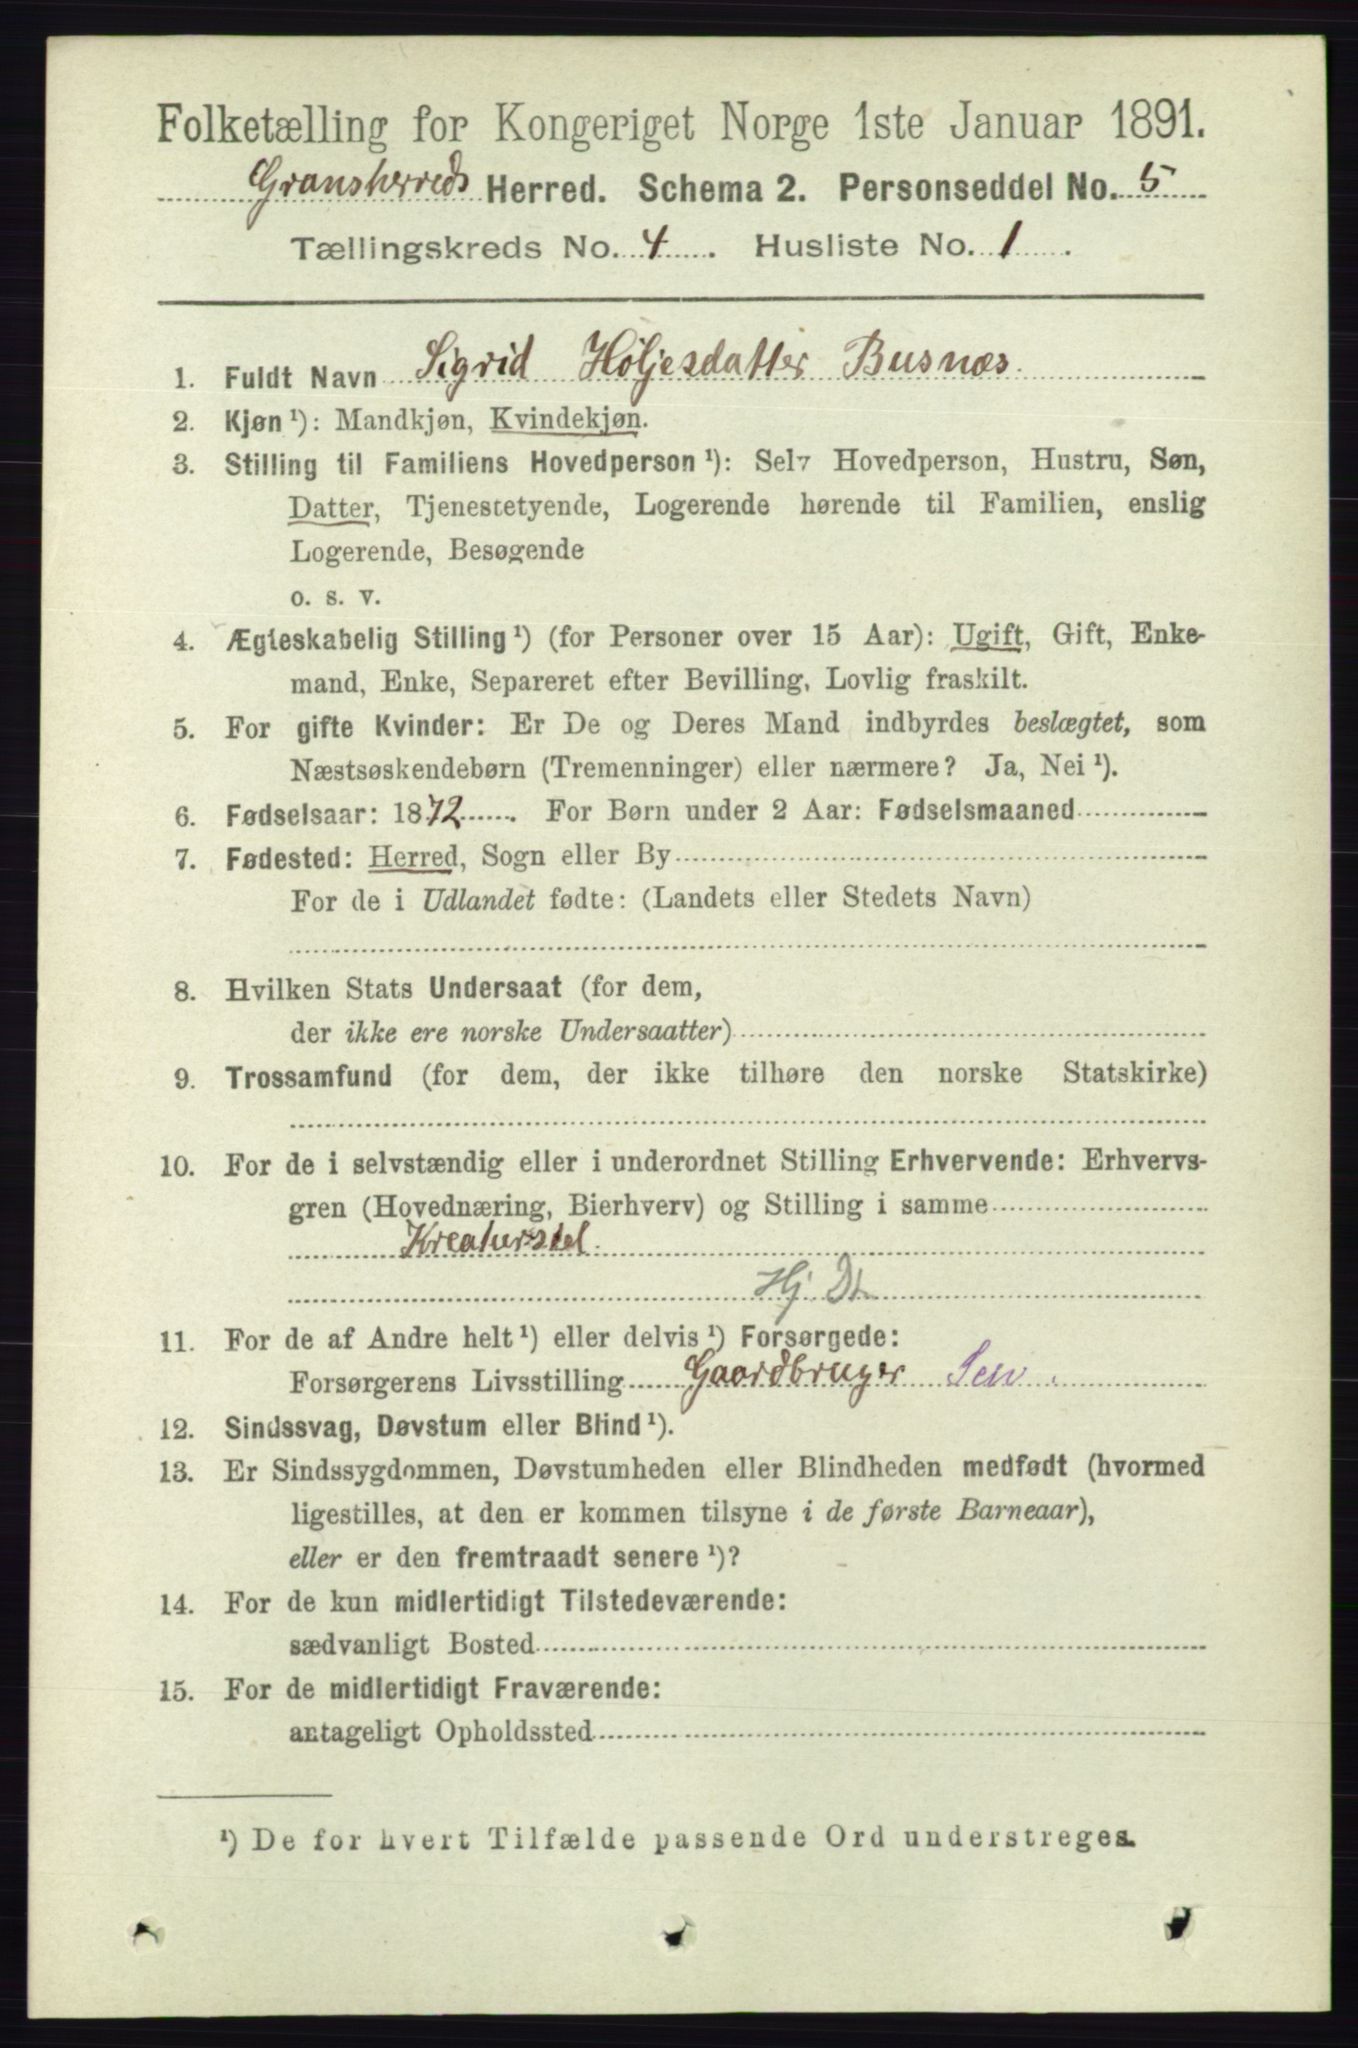 Folketælling for Kongeriget Norge 1ste Januar 1891.
Gransherreds Herred. Schema 2. Personseddel No. 5
Tællingskreds No. 4. Husliste No. 1.
1. Fuldt Navn Sigrid Höljesdatter Busnæs.
2. Kjøn ¹): Mandkjøn, Kvindekjøn.
3. Stilling til Familiens Hovedperson ¹): Selv Hovedperson, Hustru, Søn,
Datter, Tjenestetyende, Logerende hørende til Familien, enslig
Logerende, Besøgende
o. s. v.
4. Ægteskabelig Stilling ¹) (for Personer over 15 Aar): Ugift, Gift, Enke-
mand, Enke, Separeret efter Bevilling, Lovlig fraskilt.
5. For gifte Kvinder: Er De og Deres Mand indbyrdes beslægtet, som
Næstsøskendebørn (Tremenninger) eller nærmere? Ja, Nei ¹).
6. Fødselsaar: 1872. For Børn under 2 Aar: Fødselsmaaned
7. Fødested: Herred, Sogn eller By
For de i Udlandet fødte: (Landets eller Stedets Navn)
8. Hvilken Stats Undersaat (for dem,
der ikke ere norske Undersaatter)
9. Trossamfund (for dem, der ikke tilhøre den norske Statskirke)
10. For de i selvstændig eller i underordnet Stilling Erhvervende: Erhvervs-
gren (Hovednæring, Bierhverv) og Stilling i samme
Kreaturstel.
Hj. Dt
11. For de af Andre helt ¹) eller delvis ¹) Forsørgede:
Forsørgerens Livsstilling Gaardbruger Selv.
12. Sindssvag, Døvstum eller Blind ¹).
13. Er Sindssygdommen, Døvstumheden eller Blindheden medfødt (hvormed
ligestilles, at den er kommen tilsyne i de første Barneaar),
eller er den fremtraadt senere ¹)?
14. For de kun midlertidigt Tilstedeværende:
sædvanligt Bosted
15. For de midlertidigt Fraværende:
antageligt Opholdssted
¹) De for hvert Tilfælde passende Ord understreges.